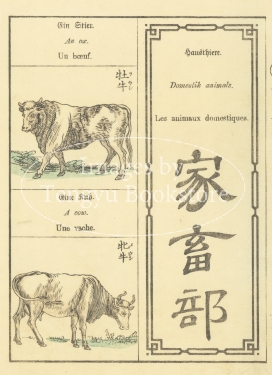 Ein Stier.
An ox.
Un bœuf.
牡牛
Eine Kuh.
A cow.
Une vache.
牝牛
Hausthiere.
Domestik animals.
Les animaux domestiques.
家畜部